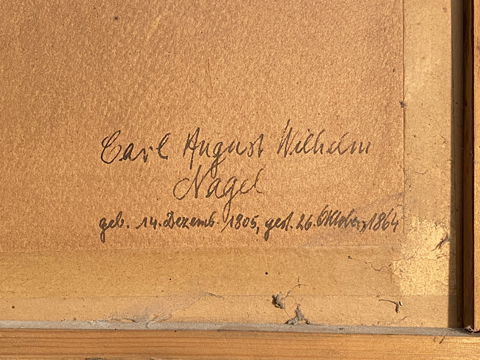 Carl August Wilhelm
Nagel
geb. 14. Dezemb. 1805, gest. 26. Oktober 1864